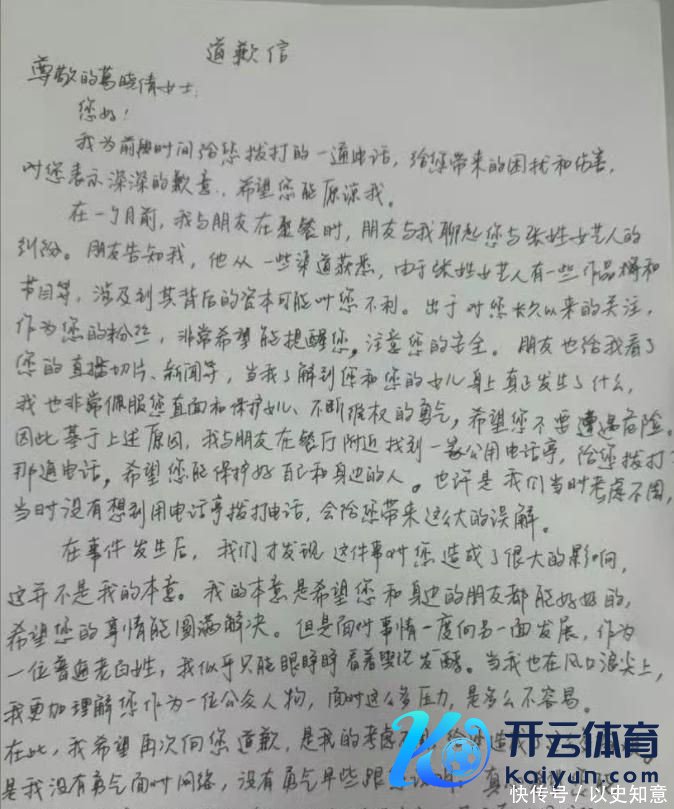 道歉信
尊敬的葛晓倩女士:
您好!
我为前段时间给您拨打的一通电话,给您带来的困扰和伤害,
对您表示深深的歉意,希望您能原谅我。
在一个月前,我与朋友在聚餐时,朋友与我聊起您与张姓女艺人的
纠纷。朋友告知我,他从一些渠道获悉,由于张姓女艺人有一些作品和
节目等,涉及到其背后的资本可能对您不利。出于对您长久以来的关注,
作为您的粉丝,非常希望能提醒您,注意您的安全。朋友也给我看了
您的直播切片、新闻等,当我了解到您和您的女儿身上真正发生了什么,
我也非常佩服您直面和保护女儿、不断维权的勇气,希望您不要遭遇危险。
因此基于上述原因,我与朋友在餐厅附近找到一家公用电话亭,给您拨打了
那通电话,希望您能保护好自己和身边的人。也许是我们当时考虑不周,
当时没有想到用电话亭拨打电话,会给您带来这么大的误解。
在事件发生后,我们才发现这件事对您造成了很大的影响,
这并不是我的本意。我的本意是希望您和身边的朋友都能好好的,
希望您的事情能圆满解决。但是面对事情一度向另一面发展,作为
一位普通老百姓,我似乎只能眼睁睁看着舆论发酵。当我也在风口浪尖上,
我更加理解您作为一位公众人物,面对这么多压力,是多么不容易。
在此,我希望再次向您道歉,是我的考虑不
是我没有勇气面对网络,没有勇气早些跟
开云体育
kaiyun.com
快传号/以史知意